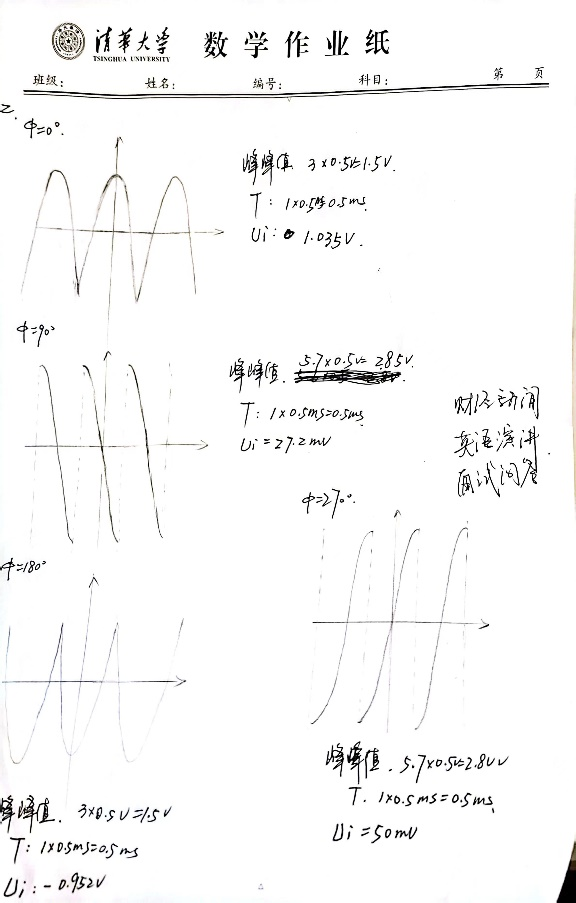 清華大学
TSINGHUA UNIVERSITY
数学作业纸
班级:
姓名:
编号:
科目:
第 页
2.
φ=0°.
峰峰值. 3×0.5V=1.5V.
T: 1×0.5=0.5ms.
Ui: 1.035V.
φ=90°
峰峰值. 5.7×0.5V=2.85V.
T: 1×0.5ms=0.5ms.
Ui=27.2mV
英语演讲.
面试问答
φ=270°.
峰峰值. 5.7×0.5V=2.8
T. 1×0.5ms=0.5ms.
Ui=50mV
φ=180°
峰峰值. 3×0.5V=1.5V
T: 1×0.5ms=0.5ms
Ui: -0.952V